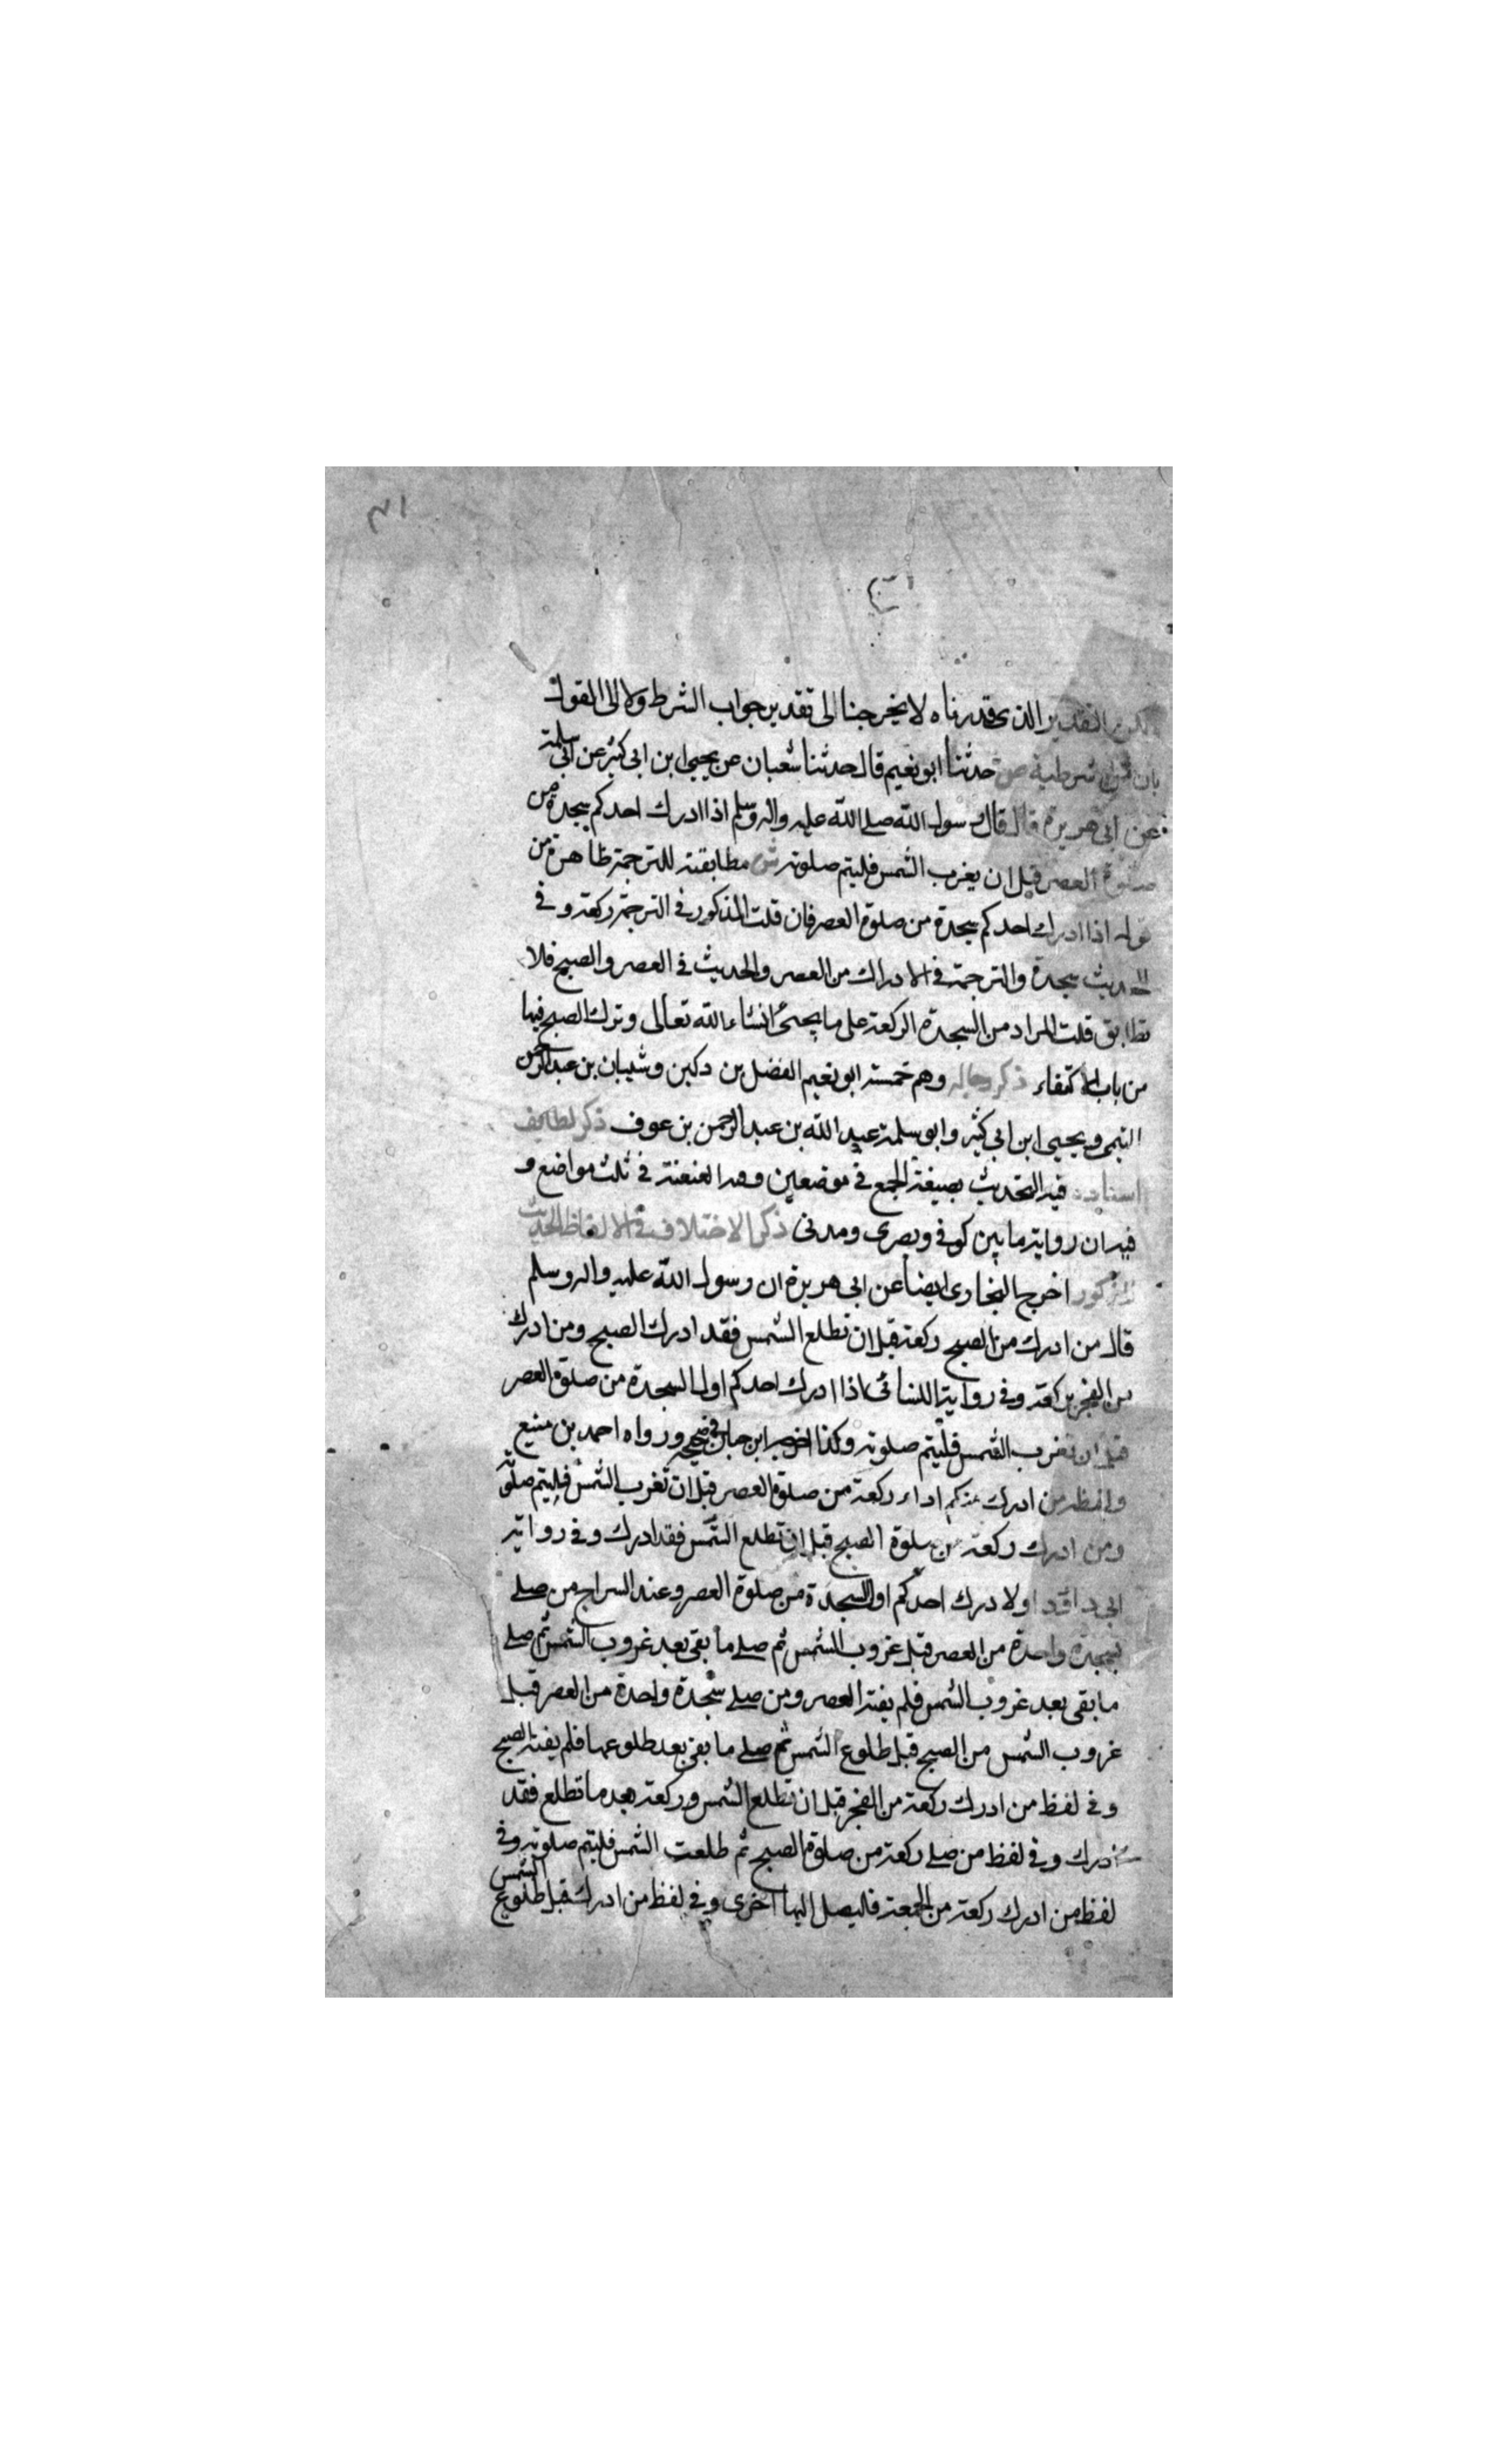 ٣١
التقدير الذى قدرناه لا يخرجنا الى تقدير جواب الشرط ولا الى القول
بان شرطية ص حدثنا ابو نعيم قال حدثنا شعبان عن يحيى ابن ابى كثير عن ابى سلمة
عن ابى هريرة قال قال رسول الله صلى الله عليه واله وسلم اذا ادرك احدكم سجدة من
صلوة العصر قبل ان يغرب الشمس فليتم صلوته ش مطابقته للترجمة ظاهرة من
قوله اذا ادرك احدكم سجدة من صلوة العصر فان قلت المذكور فى الترجمة ركعة وفى
الحديث سجدة والترجمة فى الادراك من العصر والحديث فى العصر والصبح فلا
تطابق قلت المراد من السجدة الركعة على ما يجئ انشاء الله تعالى وترك الصبح فيها
من باب الاكتفاء ذكر رجاله وهم خمسة ابو نعيم الفضل بن دكين وشيبان بن عبد الرحمن
التيمى ويحيى ابن ابى كثير وابو سلمة عبد الله بن عبد الرحمن بن عوف ذكر لطايف
اسناده فيه التحديث بصيغة الجمع فى موضعين وفيه العنعنة فى ثلث مواضع و
فيه ان رواية ما بين كوفى وبصرى ومدنى ذكر الاختلاف فى الالفاظ الحديث
المذكور اخرج البخارى ايضا عن ابى هريرة ان رسول الله عليه واله وسلم
قال من ادرك من الصبح ركعة قبل ان تطلع الشمس فقد ادرك الصبح ومن ادرك
من الفجر ركعة وفى رواية النسائى اذا ادرك احدكم اول السجدة من صلوة العصر
قبل ان تغرب الشمس فليتم صلوته وكذا اخرجه ابن حبان فى صحيحه ورواه احمد بن منيع
ولفظه من ادرك منكم اداء ركعة من صلوة العصر قبل ان تغرب الشمس فليتم صلوته
ومن ادرك ركعة من صلوة الصبح قبل ان تطلع الشمس فقد ادرك وفى رواية
ابى داود اولا درك احدكم اول السجدة من صلوة العصر وعند السراج من صلى
سجدة واحدة من العصر قبل غروب الشمس ثم صلى ما بقى بعد غروب الشمس ثم صلى
ما بقى بعد غروب الشمس فلم يفته العصر ومن صلى سجدة واحدة من العصر قبل
غروب الشمس من الصبح قبل طلوع الشمس ثم صلى ما بقى بعد طلوعها فلم يفته الصبح
وفى لفظ من ادرك ركعة من الفجر قبل ان تطلع الشمس وركعة بعد ما تطلع فقد
ادرك وفى لفظ من صلى ركعة من صلوة الصبح ثم طلعت الشمس فليتم صلوته وفى
لفظ من ادرك ركعة من الجمعة فليصل اليها اخرى وفى لفظ من ادرك قبل طلوع الشمس